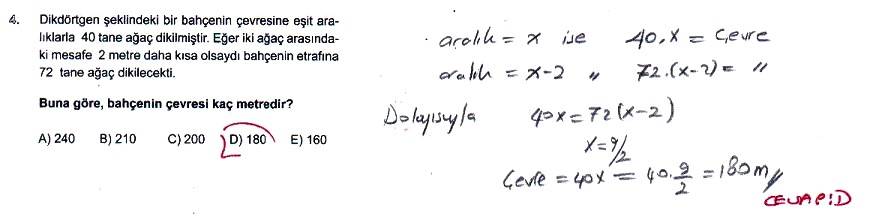 4. Dikdörtgen şeklindeki bir bahçenin çevresine eşit ara-
lıklarla 40 tane ağaç dikilmiştir. Eğer iki ağaç arasında-
ki mesafe 2 metre daha kısa olsaydı bahçenin etrafına
72 tane ağaç dikilecekti.
Buna göre, bahçenin çevresi kaç metredir?
A) 240 B) 210 C) 200 D) 180 E) 160
aralık = x ise 40.x = Çevre
aralık = x-2 " 72.(x-2) = "
Dolayısıyla 40x = 72(x-2)
x = 9/2
Çevre = 40x = 40.9/2 = 180m
CEVAP:D